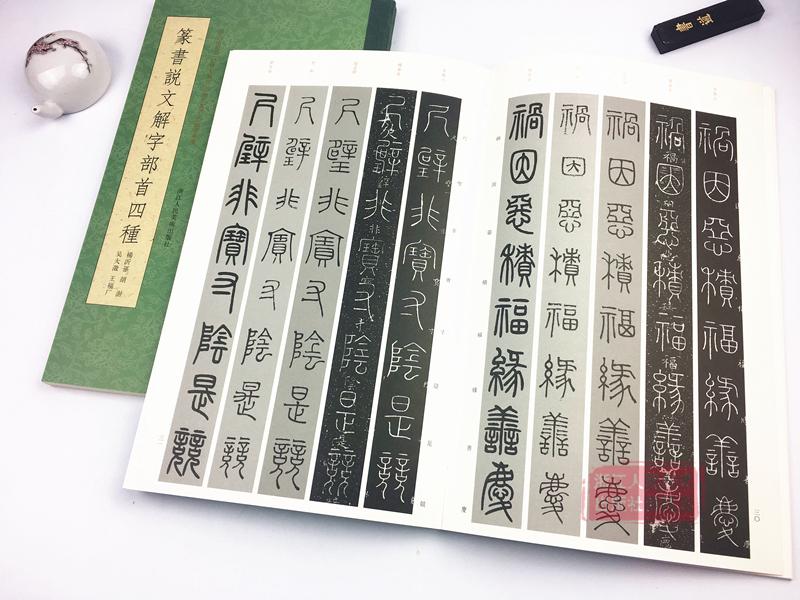 篆書説文解字部首四種
楊沂孫 胡澍
吳大澂 王福厂
浙江人民美術出版社
禍因惡積福緣善慶
禍因惡積福緣善慶
禍因惡積福緣善慶
禍因惡積福緣善慶
禍因惡積福緣善慶
禍因惡積福緣善慶
三〇
尺璧非寶寸陰是競
尺璧非寶寸陰是競
尺璧非寶寸陰是競
尺璧非寶寸陰是競
尺璧非寶寸陰是競
尺璧非寶寸陰是競
三一